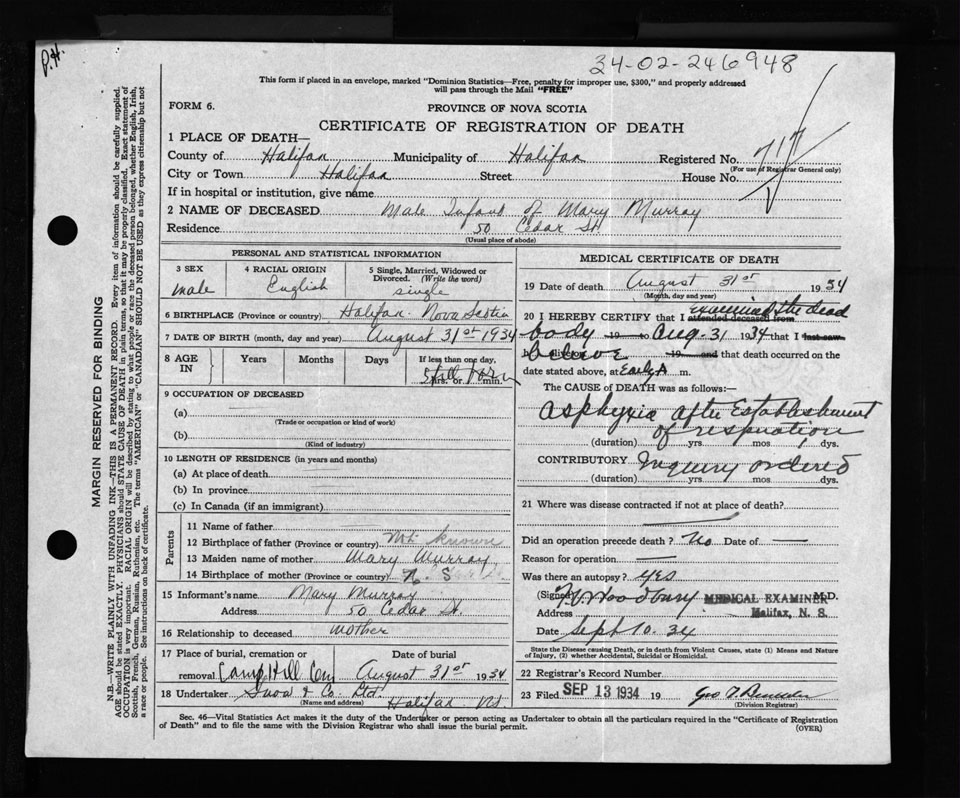 P.H.
34-02-246948
This form if placed in an envelope, marked "Dominion Statistics—Free, penalty for improper use, $300," and properly addressed
will pass through the Mail "FREE"
FORM 6.
PROVINCE OF NOVA SCOTIA
CERTIFICATE OF REGISTRATION OF DEATH
1 PLACE OF DEATH—
County of Halifax Municipality of Halifax Registered No. 717
(For use of Registrar General only)
City or Town Halifax Street House No.
If in hospital or institution, give name
2 NAME OF DECEASED Male Infant of Mary Murray
Residence 50 Cedar St.
(Usual place of abode)
PERSONAL AND STATISTICAL INFORMATION
3 SEX male
4 RACIAL ORIGIN English
5 Single, Married, Widowed or
Divorced. (Write the word)
single
6 BIRTHPLACE (Province or country) Halifax Nova Scotia
7 DATE OF BIRTH (month, day and year) August 31st 1934
8 AGE IN Years Months Days If less than one day,
hrs. or min.
Still born
9 OCCUPATION OF DECEASED
(a)
(Trade or occupation or kind of work)
(b)
(Kind of industry)
10 LENGTH OF RESIDENCE (in years and months)
(a) At place of death
(b) In province
(c) In Canada (if an immigrant)
Parents
11 Name of father
12 Birthplace of father (Province or country) Not known
13 Maiden name of mother Mary Murray
14 Birthplace of mother (Province or country) N. S
15 Informant's name Mary Murray
Address 50 Cedar St.
16 Relationship to deceased mother
17 Place of burial, cremation or removal Camp Hill Cem
Date of burial
August 31st 1934
18 Undertaker Snow & Co. Ltd.
(Name and address) Halifax NS.
MEDICAL CERTIFICATE OF DEATH
19 Date of death August 31st 1934
(Month, day and year)
20 I HEREBY CERTIFY that I attended deceased from examined the dead
body 19 to Aug. 31 1934 that I last saw
believe 19 and that death occurred on the
date stated above, at Early A m.
The CAUSE OF DEATH was as follows:—
Asphyxia after Establishment
of respiration
(duration) yrs. mos. dys.
CONTRIBUTORY Inquiry ordered
(duration) yrs. mos. dys.
21 Where was disease contracted if not at place of death?
Did an operation precede death? No Date of —
Reason for operation —
Was there an autopsy? Yes
(Signed) Woodbury MEDICAL EXAMINER M.D.
Address Halifax, N. S.
Date Sept 10. 34
State the Disease causing Death, or in death from Violent Causes, state (1) Means and Nature
of Injury, (2) whether Accidental, Suicidal or Homicidal.
22 Registrar's Record Number
23 Filed SEP 13 1934 19 Geo
(Division Registrar)
Sec. 46—Vital Statistics Act makes it the duty of the Undertaker or person acting as Undertaker to obtain all the particulars required in the "Certificate of Registration
of Death" and to file the same with the Division Registrar who shall issue the burial permit.
(OVER)
MARGIN RESERVED FOR BINDING
N.B.—WRITE PLAINLY WITH UNFADING INK—THIS IS A PERMANENT RECORD. Every item of information should be carefully supplied.
AGE should be stated EXACTLY. PHYSICIANS should STATE CAUSE OF DEATH in plain terms, so that it may be properly classified. Exact statement of
OCCUPATION is very important. RACIAL ORIGIN will be described by stating to what people or race the deceased person belonged, whether English, Irish,
Scottish, French, German, Russian, Ruthenian, etc. The terms "AMERICAN" or "CANADIAN" SHOULD NOT BE USED as they express citizenship but not
a race or people. See instructions on back of certificate.